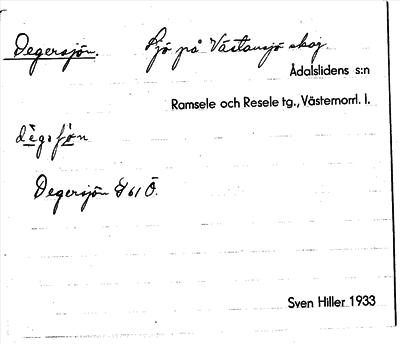 Degersjön. Sjö på Västansjö skog
Ådalslidens s:n
Ramsele och Resele tg., Västernorrl. l.
Degersjön G 61 Ö.
Sven Hiller 1933